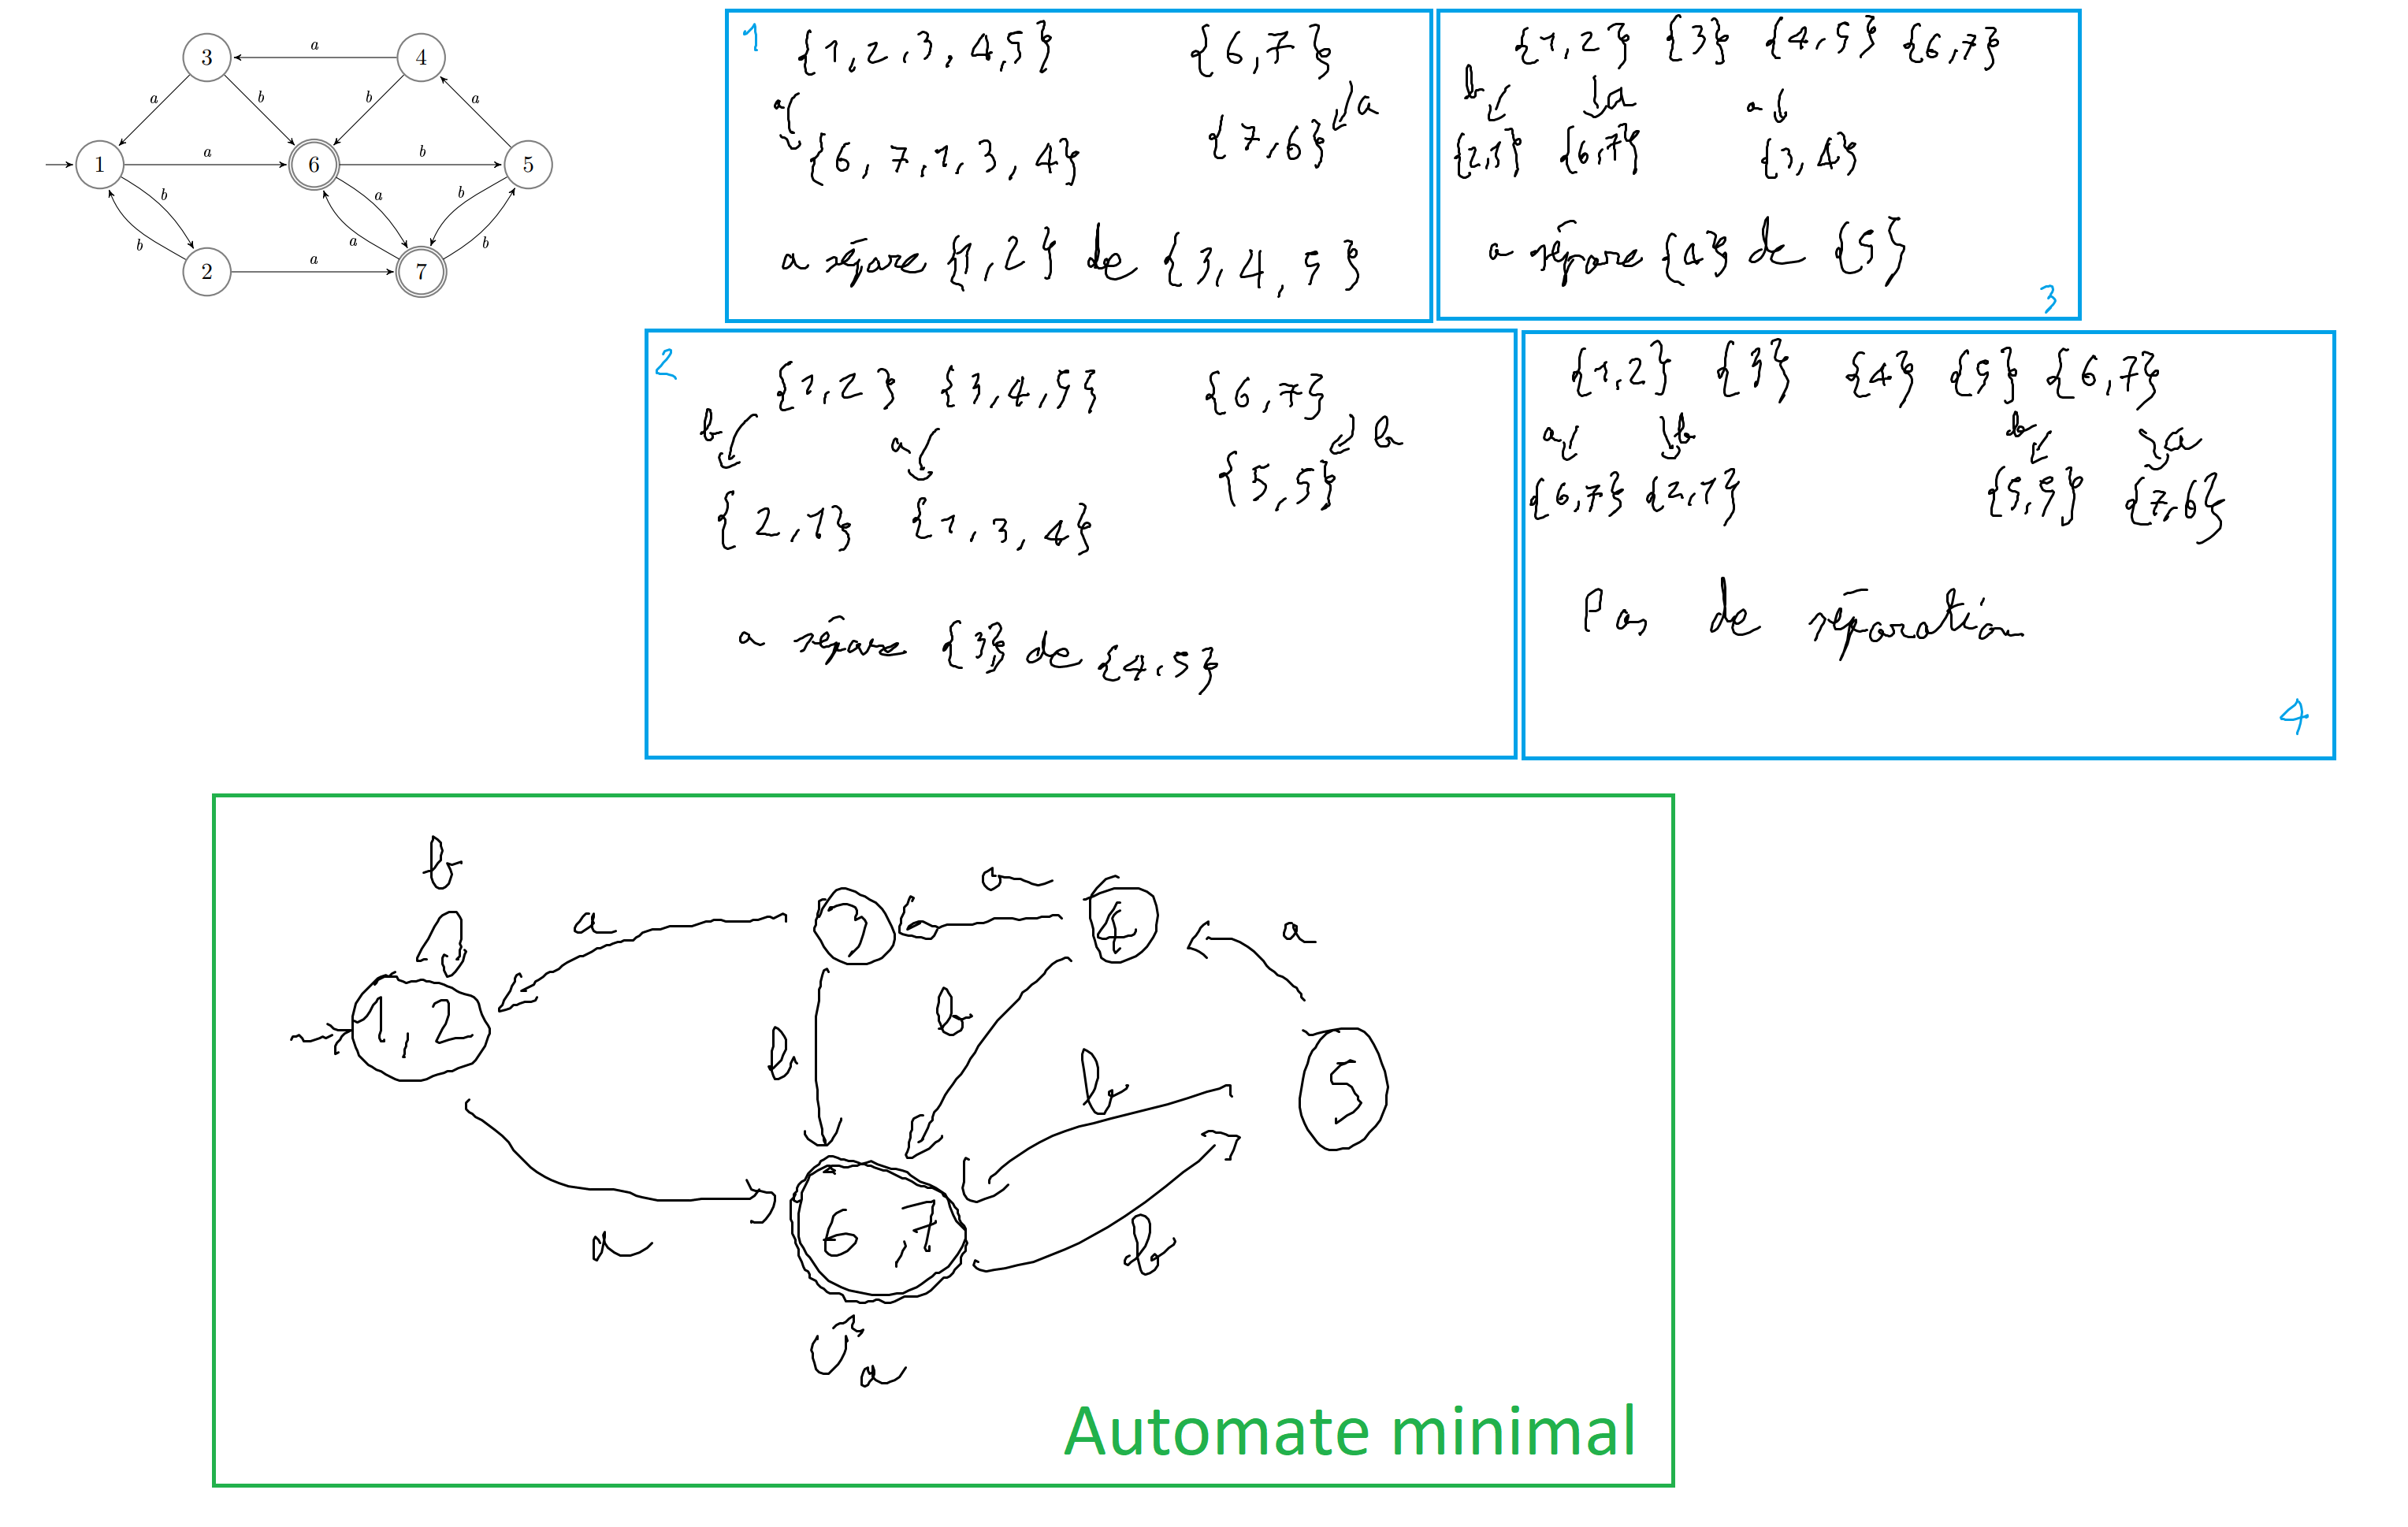 3 a 4
a b b a
1 a 6 b 5
b a b
b a b
2 a 7
1 {1,2,3,4,5} {6,7}
a a
{6,7,1,3,4} {7,6}
a sépare {1,2} de {3,4,5}
{1,2} {3} {4,5} {6,7}
b a a
{2,1} {6,7} {3,4}
a sépare {4} de {5}
3
2 {1,2} {3,4,5} {6,7}
b a b
{2,1} {1,3,4} {5,5}
a sépare {3} de {4,5}
{1,2} {3} {4} {5} {6,7}
a b b a
{6,7} {2,1} {5,5} {7,6}
Pas de séparation
4
b a a a
3 4
1,2 b b b 5
a 6,7 b
a
Automate minimal